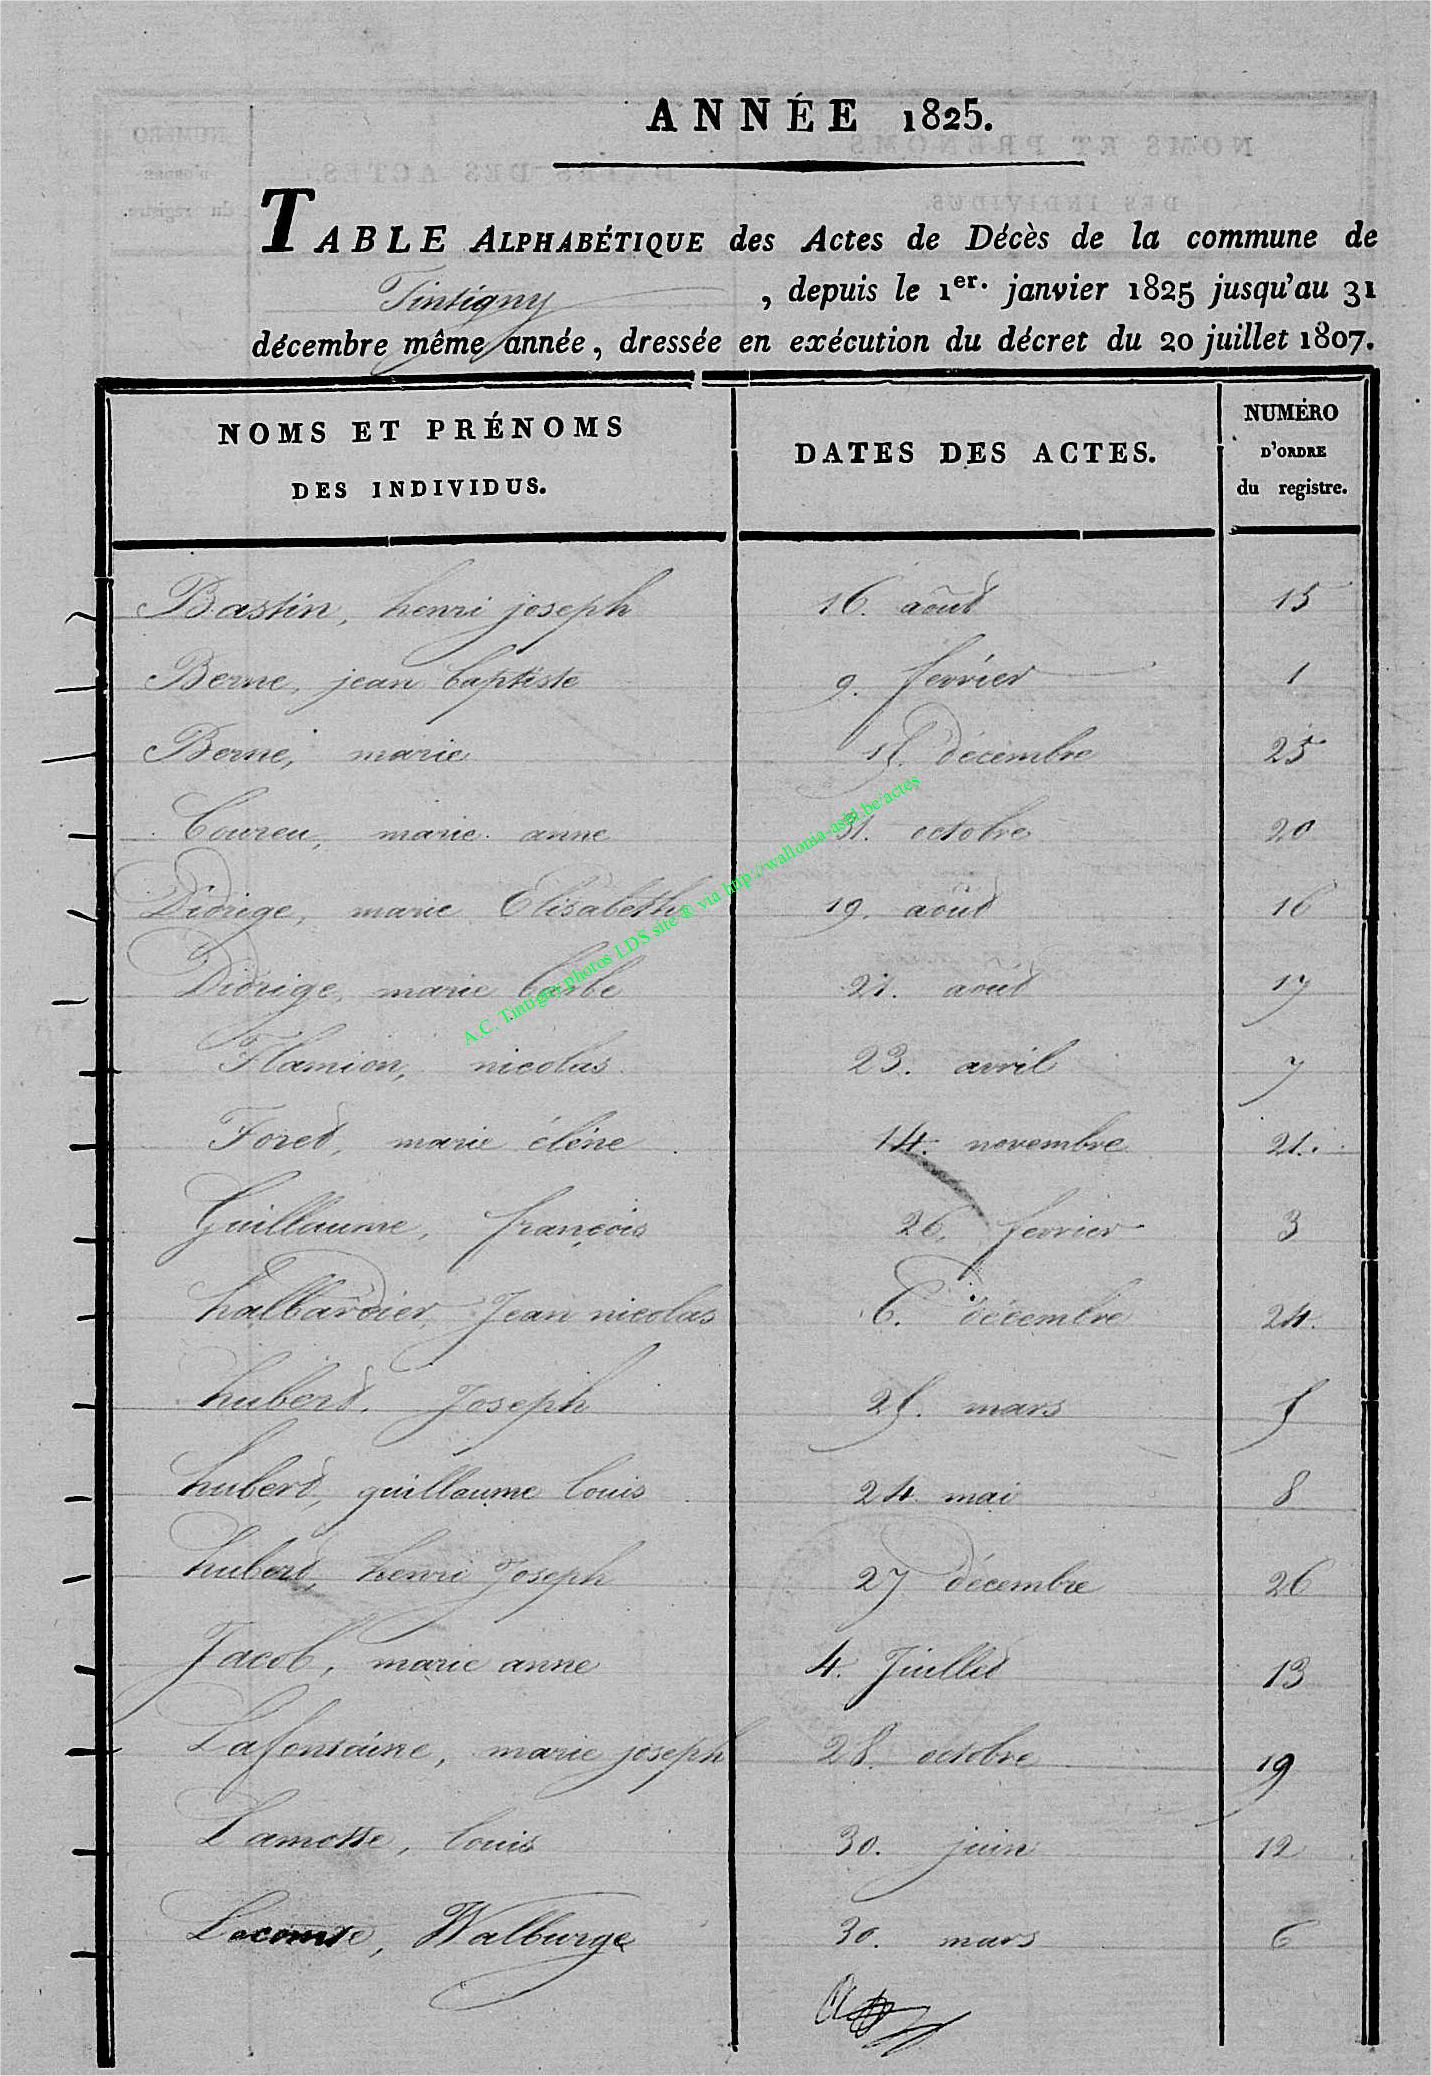 ANNÉE 1825.
TABLE ALPHABÉTIQUE des Actes de Décès de la commune de
Tintigny, depuis le 1er. janvier 1825 jusqu'au 31
décembre même année, dressée en exécution du décret du 20 juillet 1807.
NOMS ET PRÉNOMS DES INDIVIDUS. DATES DES ACTES. NUMÉRO D'ORDRE du registre.
Bastin, henri joseph 16. août 15
Berne, jean baptiste 9. février 1
Berne, marie décembre 25
Coureu, marie anne 31. octobre 20
Didrige, marie Elisabeth 19. août 16
Didrige, marie barbe 21. août 17
Flamion, nicolas 23. avril 7
Foret, marie élène 14. novembre 21.
Guillaume, françois 26. fevrier 3
halbardier, Jean nicolas 6. décembre 24.
hubert. Joseph 25. mars 5
hubert, guillaume louis 24. mai 8
hubert, henri Joseph 27 décembre 26
Jacob, marie anne 4. Juillet 13
Lafontaine, marie joseph 28. octobre 19
Lamotte, louis 30. juin 12
Lecomte, Walburge 30. mars 6
A.C. Tintigny photos LDS site ® via http://wallonia-asbl.be/actes